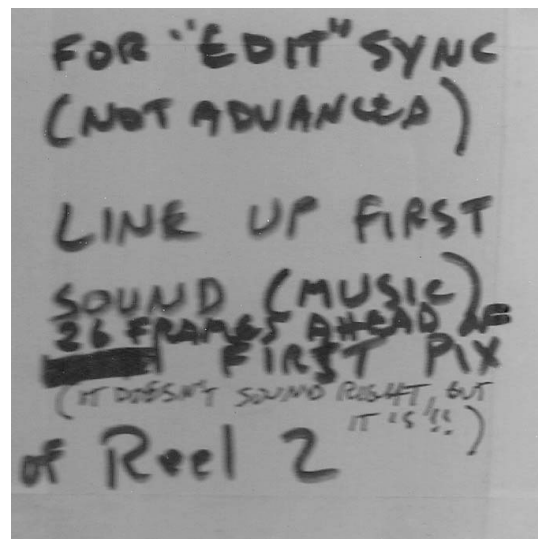 FOR "EDIT" SYNC
(NOT ADVANCED)
LINE UP FIRST
SOUND (MUSIC)
26 FRAMES AHEAD OF
FIRST PIX
(IT DOESN'T SOUND RIGHT, BUT
IT IS!!)
of Reel 2